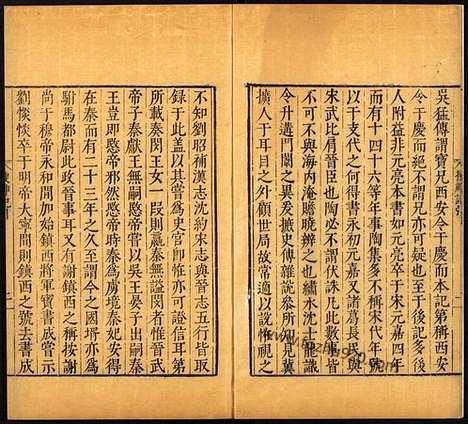 吳猛傳謂寶兄西安令干慶而本記第稱西安
令于慶而絕不謂兄亦可疑也至于後記多後
人附益非元亮本書如元亮卒于宋元嘉四年
而有十四十六等年事陶集多不稱宋代年號
以干支代之何得書永初元嘉又諸葛長民與
宋武比肩晉臣也陶必不謂伏誅凡此數事皆
不可不與海內淹贍曉辨之士縷水沈士龍識
令升遘門闈之異爰摭史傳雜說參所知見冀
擴人于耳目之外顧世局故常適以說怪視之
不知劉昭補漢志沈約宋志與晉志五行皆取
錄于此蓋以其嘗為史官卽怪亦可信耳
惟所載秦閔王女一段則嬴秦無諡閔者後曰
帝子秦嬪則又吳王女吳王晏子出嗣秦
王豈卽愍帝邪然愍帝為虜境秦妃安得
在秦而有二十三年之久至謂今之國壻亦為
駙馬都尉此政晉事耳又有謝鎮西之稱按謝
尚于穆帝永和間加始鎮西將軍寶書成嘗示
劉惔惔卒于明帝大寧間則鎮西之號去書成
搜神記引
二